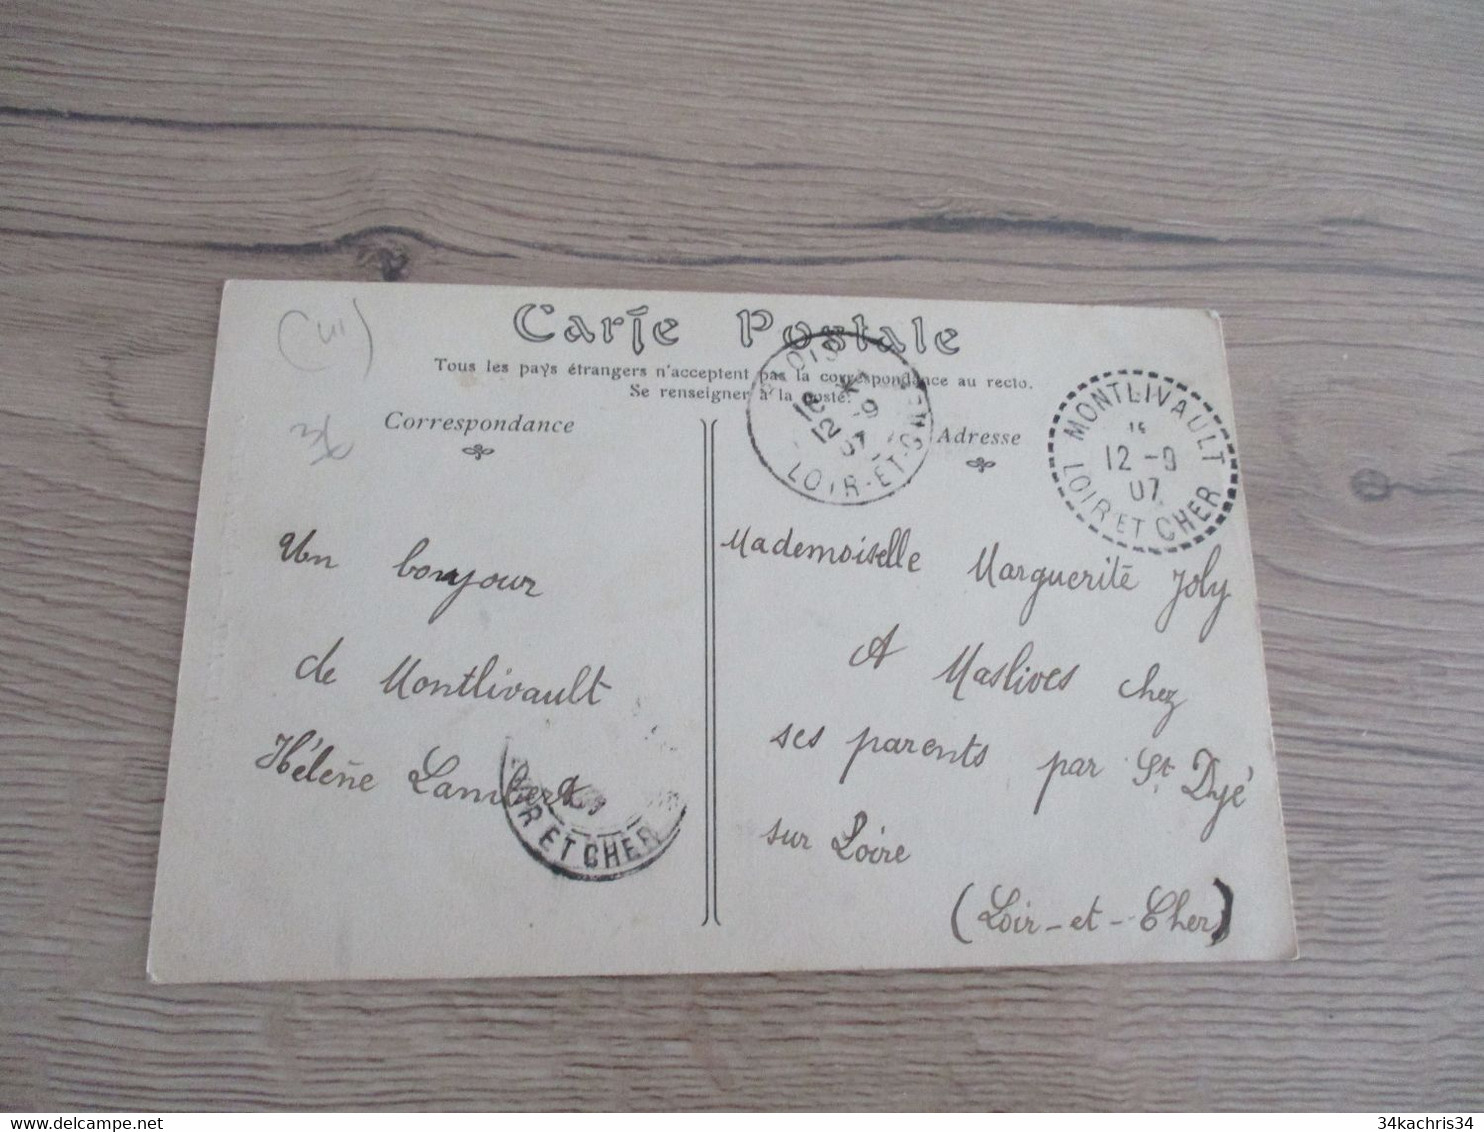 Carte Postale
Tous les pays étrangers n'acceptent pas la correspondance au recto.
Se renseigner à la poste.
Correspondance
Adresse
MONTLIVAULT
12 -9
07
LOIR ET CHER
12 -9
07
LOIR-ET-CHER
Un bonjour
de Montlivault
Hélène Lambert
LOIR ET CHER
Mademoiselle Marguerite Joly
A Maslives chez
ses parents par St Dyé
sur Loire
(Loir-et-Cher)
www.delcampe.net
34kachris34